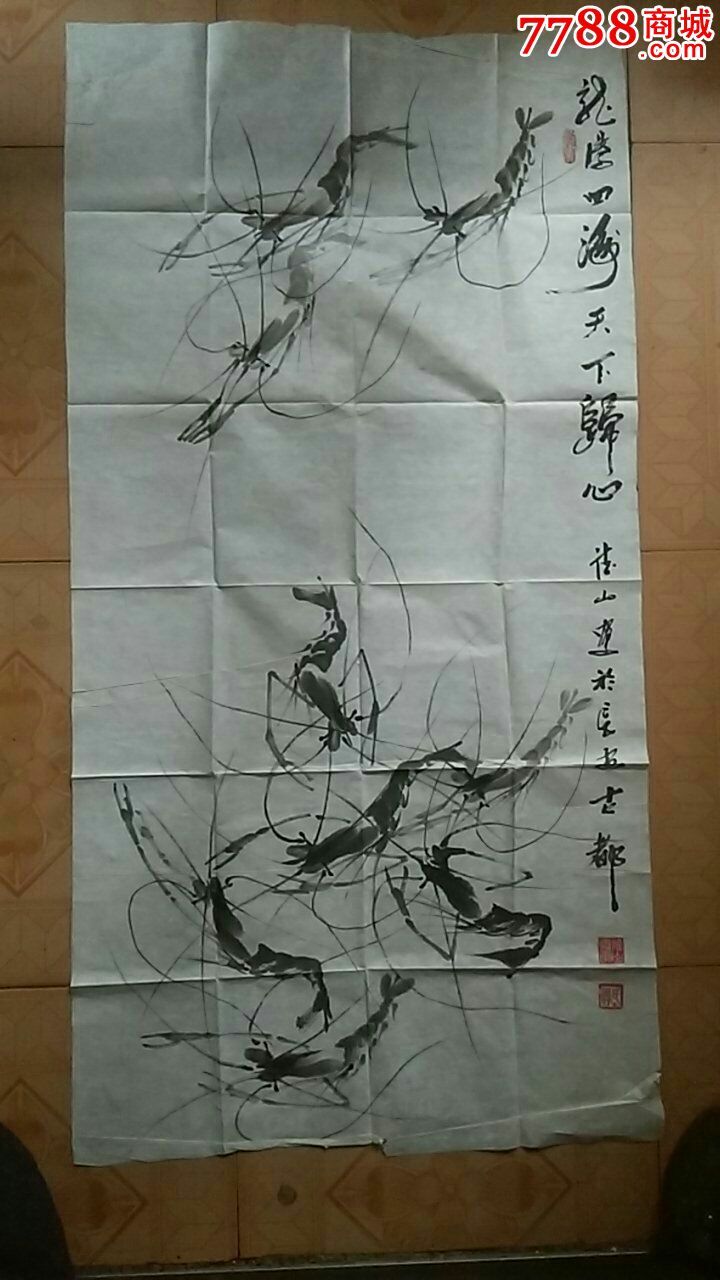 7788商城
.com
龍騰四海天下歸心
山畫於長安古都